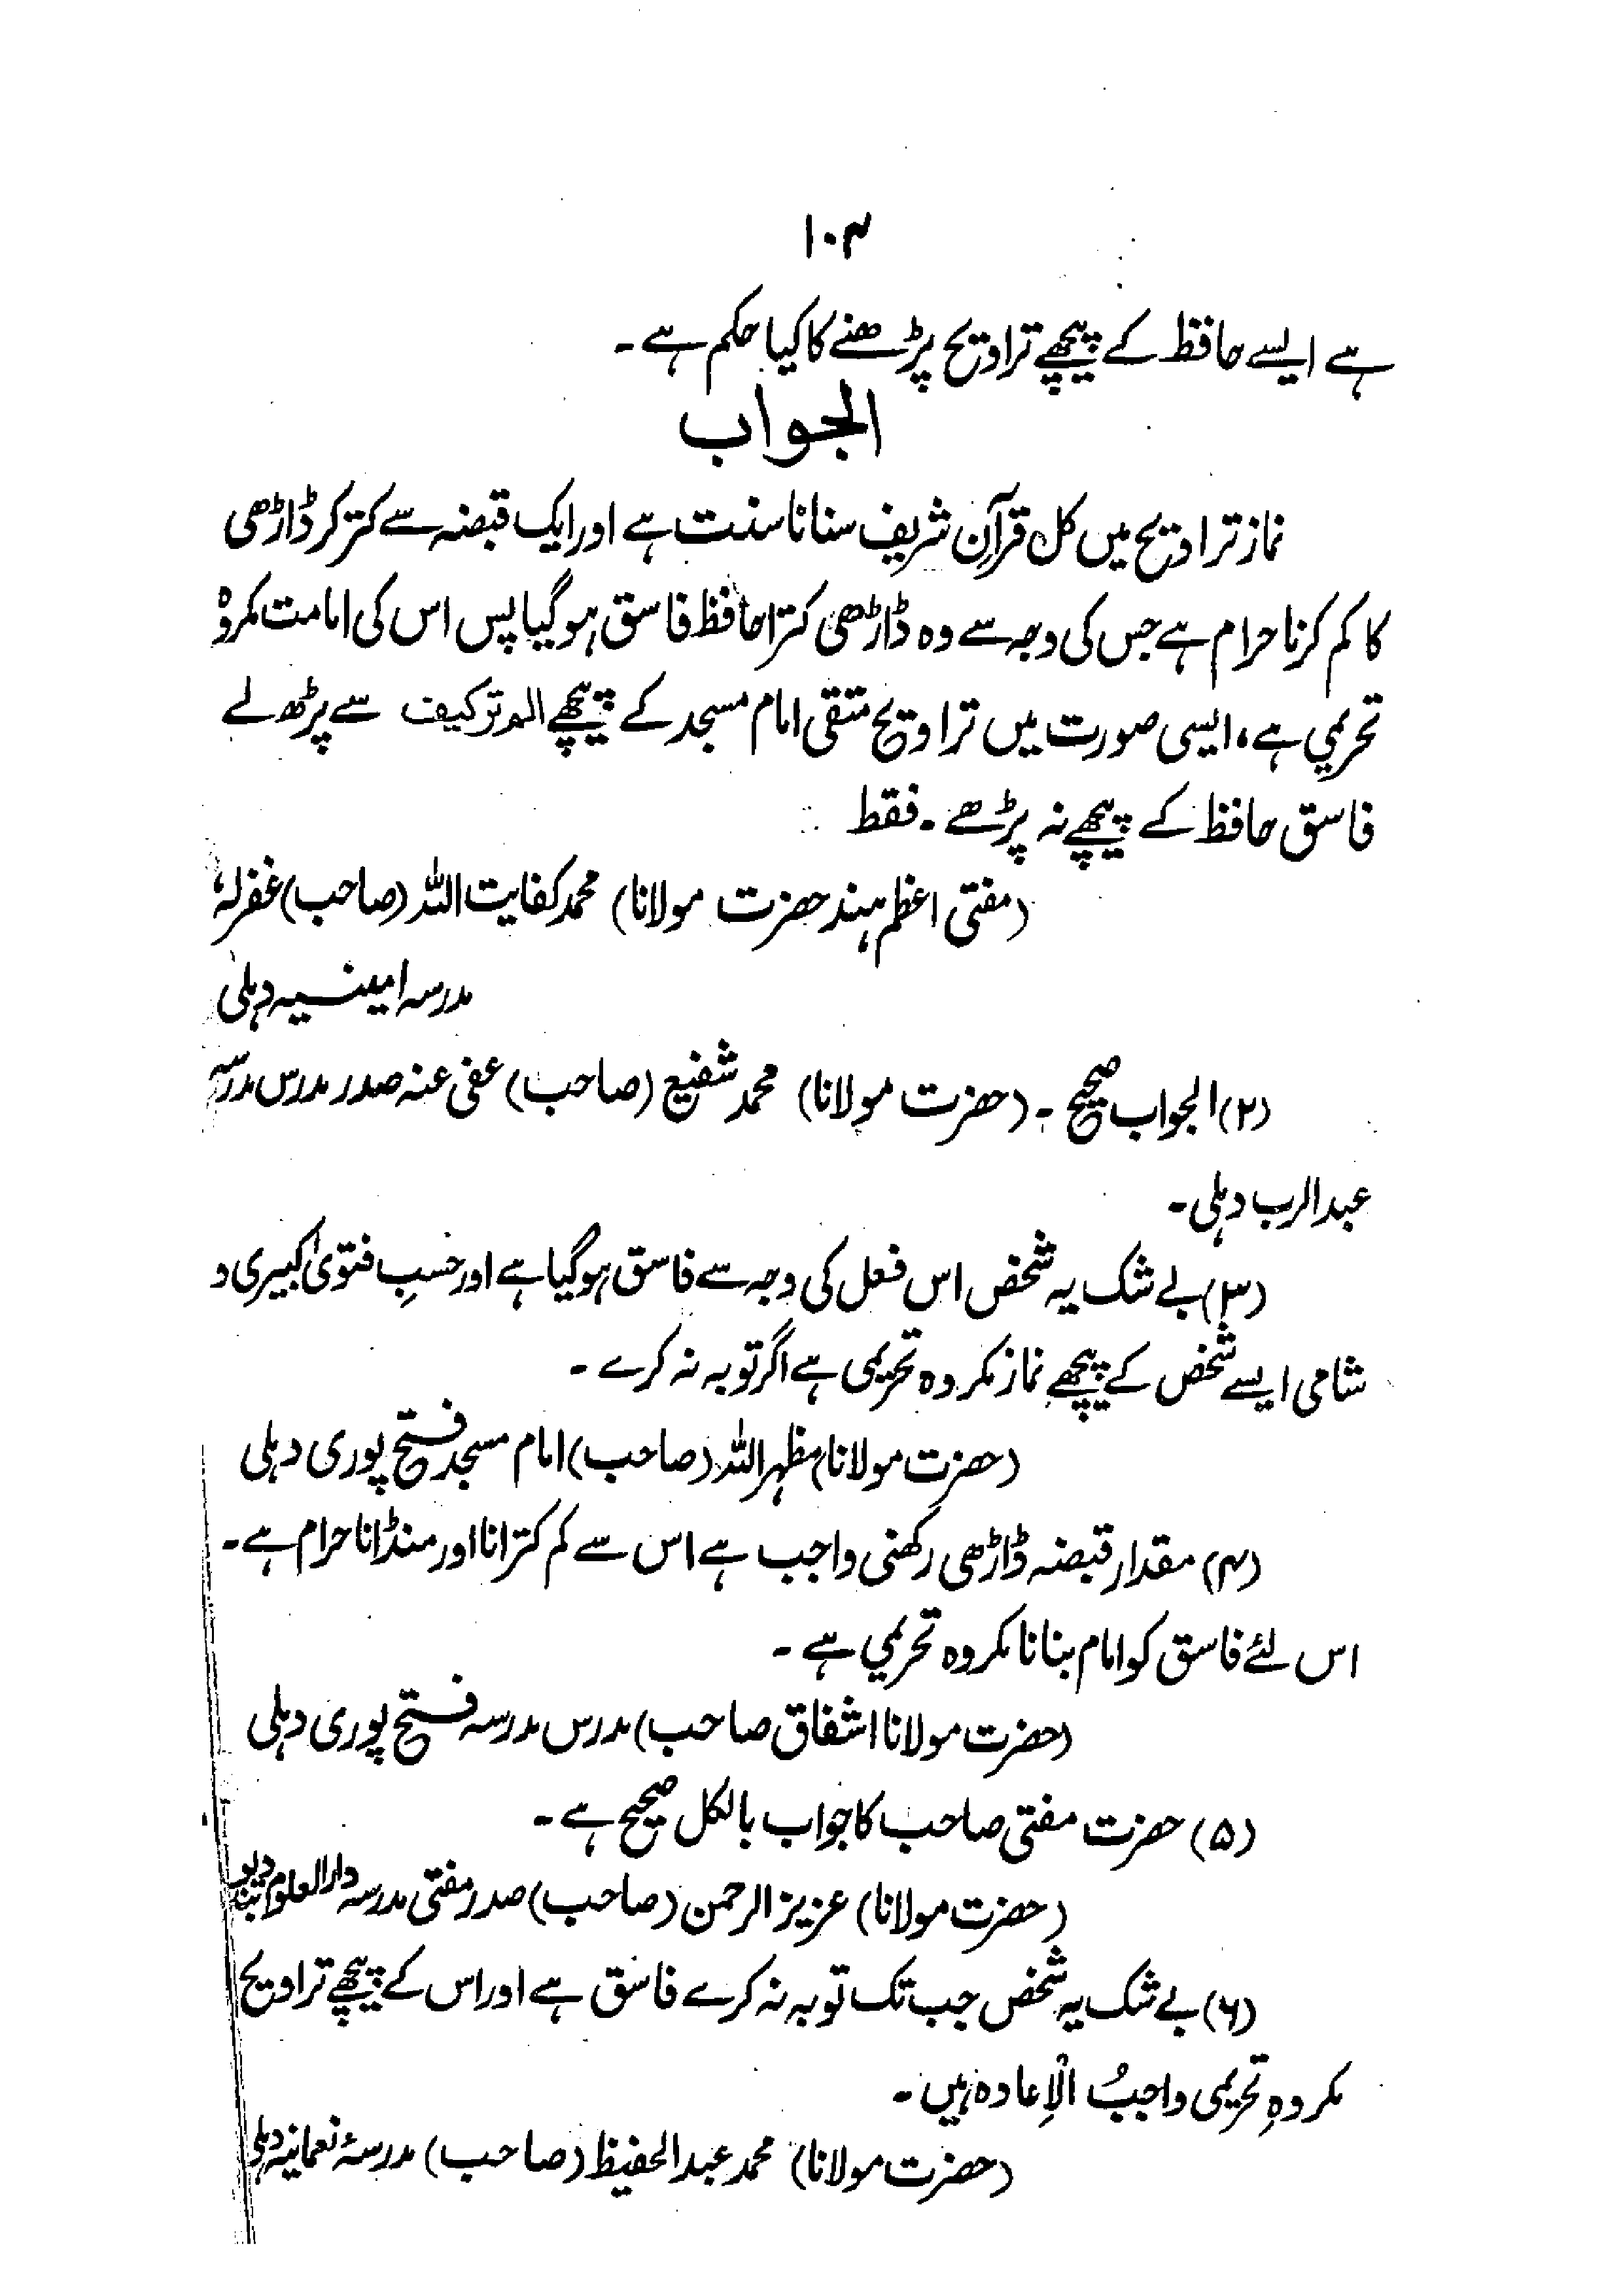 ۱۰۴
ہے ایسے حافظ کے پیچھے تراویح پڑھنے کا کیا حکم ہے۔
الجواب
نماز تراویح میں کل قرآن شریف سنانا سنت ہے اور ایک قبضہ سے کتر کر ڈاڑھی
کا کم کرنا حرام ہے جس کی وجہ سے وہ ڈاڑھی کترا حافظ فاسق ہو گیا پس اس کی امامت مکروہ
تحریمی ہے، ایسی صورت میں تراویح متقی امام مسجد کے پیچھے الم ترکیف سے پڑھ لے
فاسق حافظ کے پیچھے نہ پڑھے۔ فقط
(مفتی اعظم ہند حضرت مولانا) محمد کفایت اللہ (صاحب) غفرلہٗ
مدرسہ امینیہ دہلی
(۲) الجواب صحیح۔ (حضرت مولانا) محمد شفیع (صاحب) عفی عنہ صدر مدرس مدرسہ
عبدالرب دہلی۔
(۳) بے شک یہ شخص اس فعل کی وجہ سے فاسق ہو گیا ہے اور حسبِ فتویٰ کبیری و
شامی ایسے شخص کے پیچھے نماز مکروہ تحریمی ہے اگر توبہ نہ کرے۔
(حضرت مولانا) مظہر اللہ (صاحب) امام مسجد فتح پوری دہلی
(۴) مقدار قبضہ ڈاڑھی رکھنی واجب ہے اس سے کم کترانا اور منڈانا حرام ہے۔
اس لئے فاسق کو امام بنانا مکروہ تحریمی ہے۔
(حضرت مولانا اشفاق صاحب) مدرس مدرسہ فتح پوری دہلی
(۵) حضرت مفتی صاحب کا جواب بالکل صحیح ہے۔
(حضرت مولانا) عزیز الرحمن (صاحب) صدر مفتی مدرسہ دارالعلوم دیوبند
(۶) بے شک یہ شخص جب تک توبہ نہ کرے فاسق ہے اور اس کے پیچھے تراویح
مکروہِ تحریمی واجبُ الْاِعادہ ہیں۔
(حضرت مولانا) محمد عبدالحفیظ (صاحب) مدرسۂ نعمانیہ دہلی